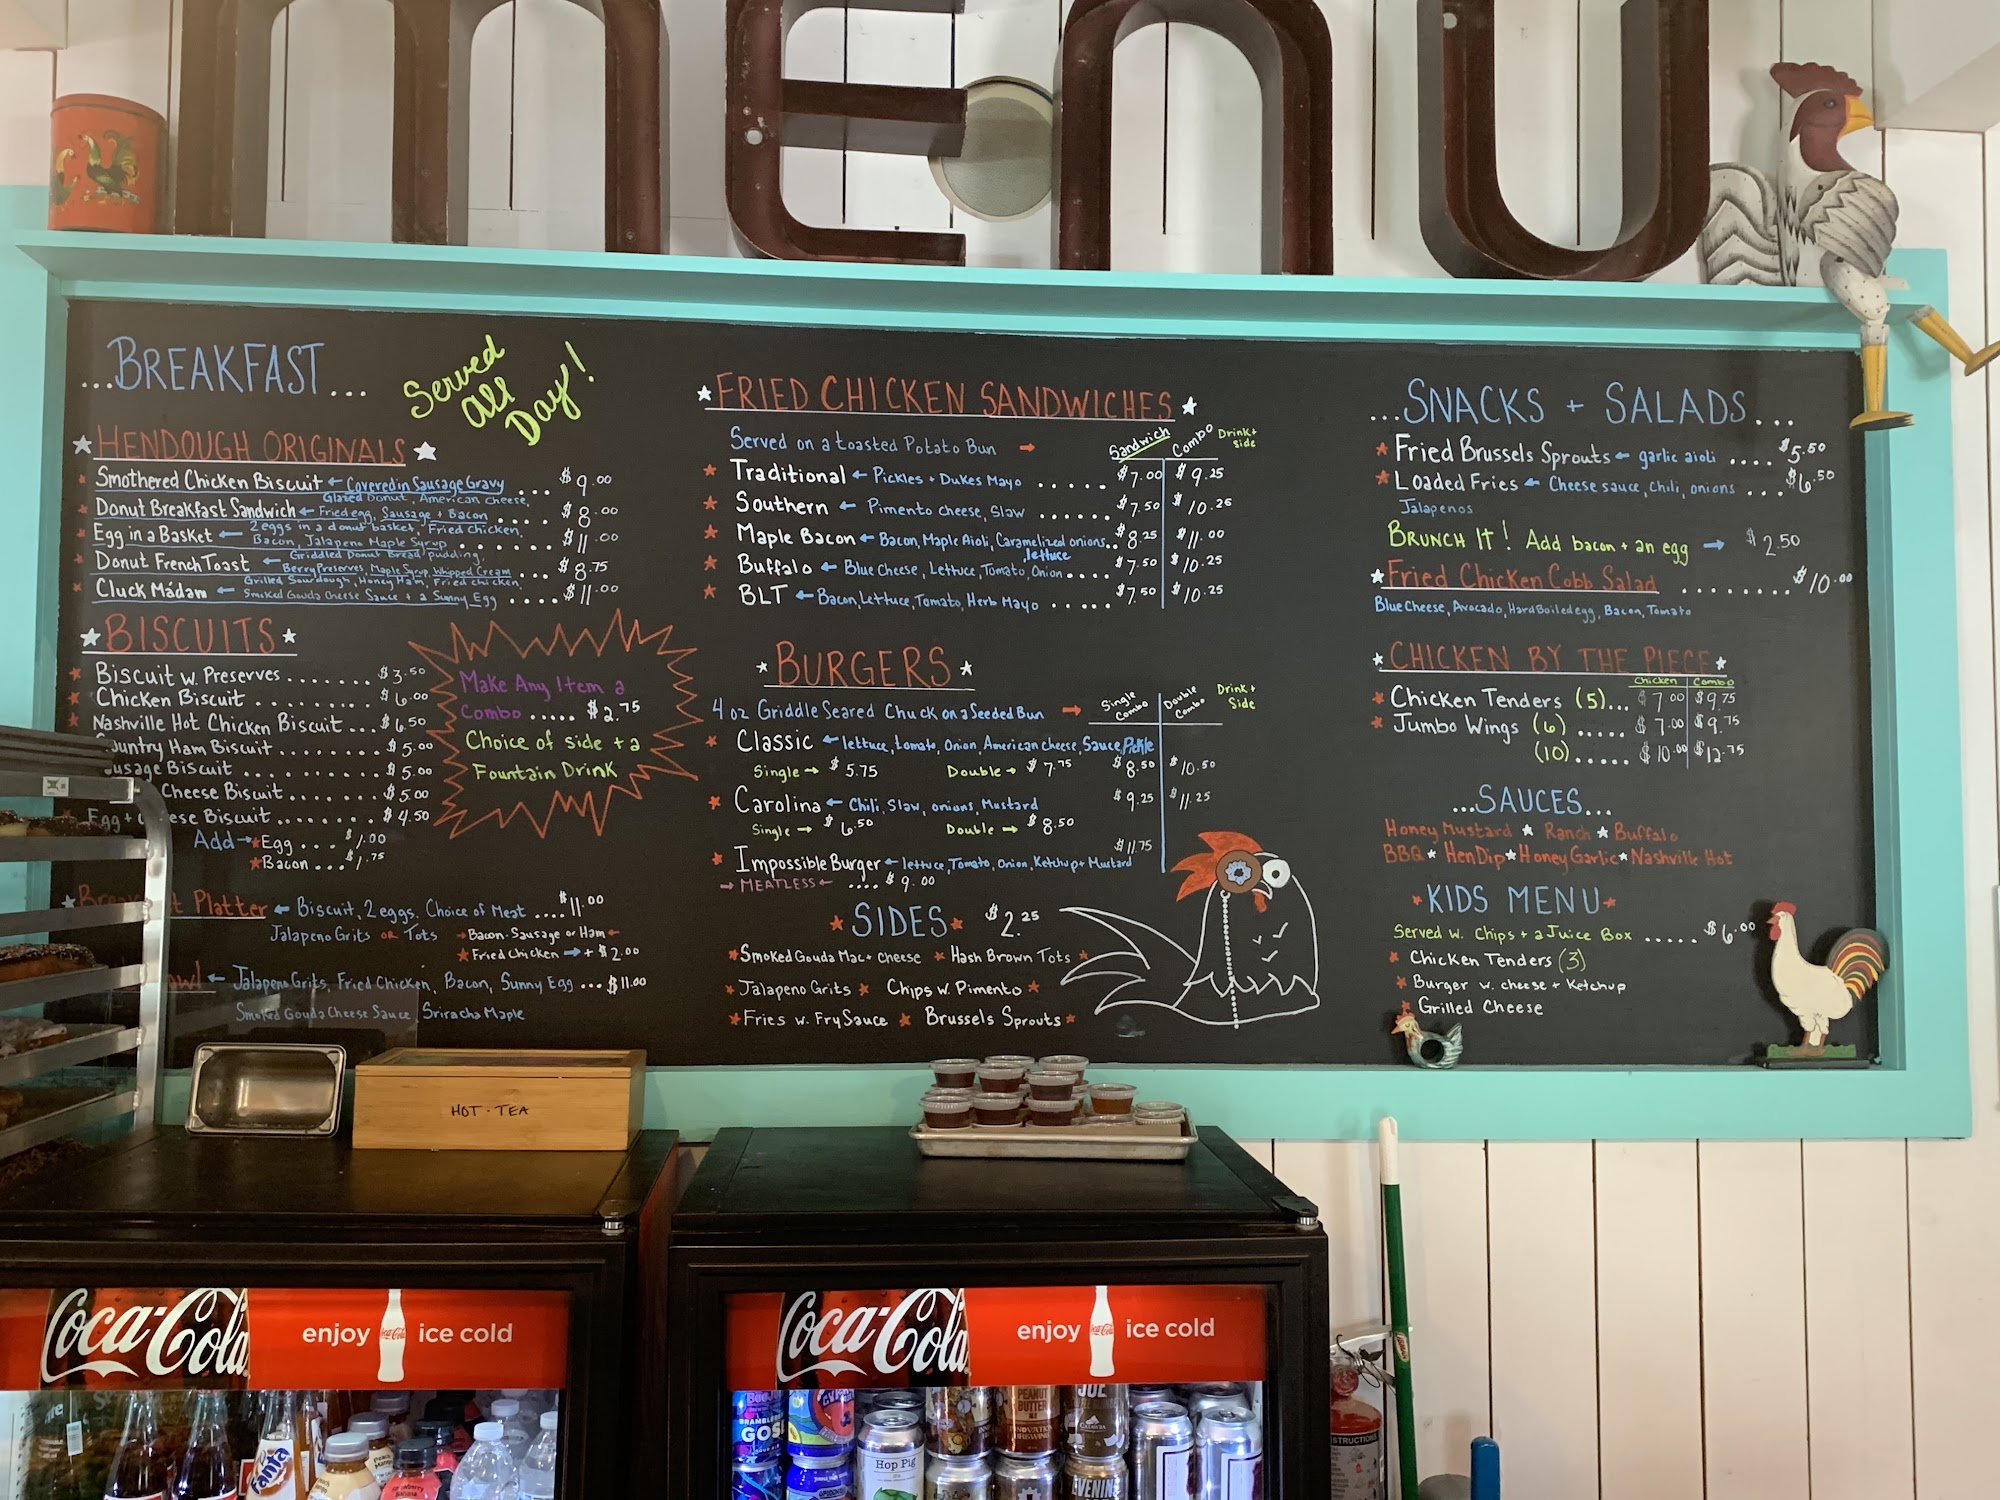 MENU
...BREAKFAST...
Served
All
Day!
HENDOUGH ORIGINALS
Smothered Chicken Biscuit ← Covered in Sausage Gravy ... $9.00
Glazed Donut, American cheese,
Donut Breakfast Sandwich ← Fried egg, Sausage + Bacon .... $8.00
Egg in a Basket ← 2 eggs in a donut basket, Fried chicken,
Bacon, Jalapeno Maple Syrup ....... $11.00
Griddled Donut Bread pudding,
Donut French Toast ← Berry Preserves, Maple Syrup, Whipped Cream ... $8.75
Grilled Sourdough, Honey Ham, Fried chicken,
Cluck Mádam ← Smoked Gouda Cheese Sauce + a Sunny Egg .... $11.00
BISCUITS
Biscuit w. Preserves ....... $3.50
Chicken Biscuit .......... $6.00
Nashville Hot Chicken Biscuit ... $6.50
Country Ham Biscuit ........ $5.00
usage Biscuit .......... $5.00
Cheese Biscuit ...... $5.00
Egg + cheese Biscuit ...... $4.50
Add → Egg ... $1.00
Bacon .... $1.75
Make Any Item a
Combo ..... $2.75
Choice of side + a
Fountain Drink
Platter ← Biscuit, 2 eggs. Choice of Meat .... $11.00
Jalapeno Grits OR Tots → Bacon · Sausage or Ham ←
Fried Chicken → + $2.00
wl ← Jalapeno Grits, Fried Chicken, Bacon, Sunny Egg ... $11.00
Smoked Gouda Cheese Sauce, Sriracha Maple
FRIED CHICKEN SANDWICHES
Served on a toasted Potato Bun → Sandwich Combo Drink + side
Traditional ← Pickles + Dukes Mayo ..... $7.00 $9.25
Southern ← Pimento cheese, Slaw ...... $7.50 $10.25
Maple Bacon ← Bacon, Maple Aioli, Caramelized onions.. $8.25 $11.00
lettuce
Buffalo ← Blue Cheese, Lettuce, Tomato, Onion .... $7.50 $10.25
BLT ← Bacon, Lettuce, Tomato, Herb Mayo ..... $7.50 $10.25
BURGERS
4 oz Griddle Seared Chuck on a Seeded Bun → Single Combo Double Combo Drink + Side
Classic ← lettuce, tomato, Onion, American cheese, Sauce, Pickle
Single → $5.75 Double → $7.75 $8.50 $10.50
Carolina ← Chili, Slaw, onions, Mustard $9.25 $11.25
Single → $6.50 Double → $8.50
$11.75
Impossible Burger ← lettuce, Tomato, Onion, Ketchup + Mustard
→ MEATLESS ← .... $9.00
SIDES $2.25
Smoked Gouda Mac + cheese Hash Brown Tots
Jalapeno Grits Chips w. Pimento
Fries w. Fry Sauce Brussels Sprouts
...SNACKS + SALADS...
Fried Brussels Sprouts ← garlic aioli .... $5.50
Loaded Fries ← Cheese sauce, chili, onions ... $6.50
Jalapenos
BRUNCH It! Add bacon + an egg → $2.50
Fried Chicken Cobb Salad ........ $10.00
Blue Cheese, Avocado, Hard Boiled egg, Bacon, Tomato
CHICKEN BY THE PIECE
Chicken Combo
Chicken Tenders (5)... $7.00 $9.75
Jumbo Wings (6) ..... $7.00 $9.75
(10) ..... $10.00 $12.75
...SAUCES...
Honey Mustard Ranch Buffalo
BBQ HenDip Honey Garlic Nashville Hot
KIDS MENU
Served w. Chips + a Juice Box ..... $6.00
Chicken Tenders (3)
Burger w. cheese + Ketchup
Grilled Cheese
HOT · TEA
Coca-Cola enjoy Coca-Cola ice cold
Coca-Cola enjoy Coca-Cola ice cold
fanta
GOS
Hop Pig
PEANUT
BUTTER
JOE
EVENIN
STRUCTIONS